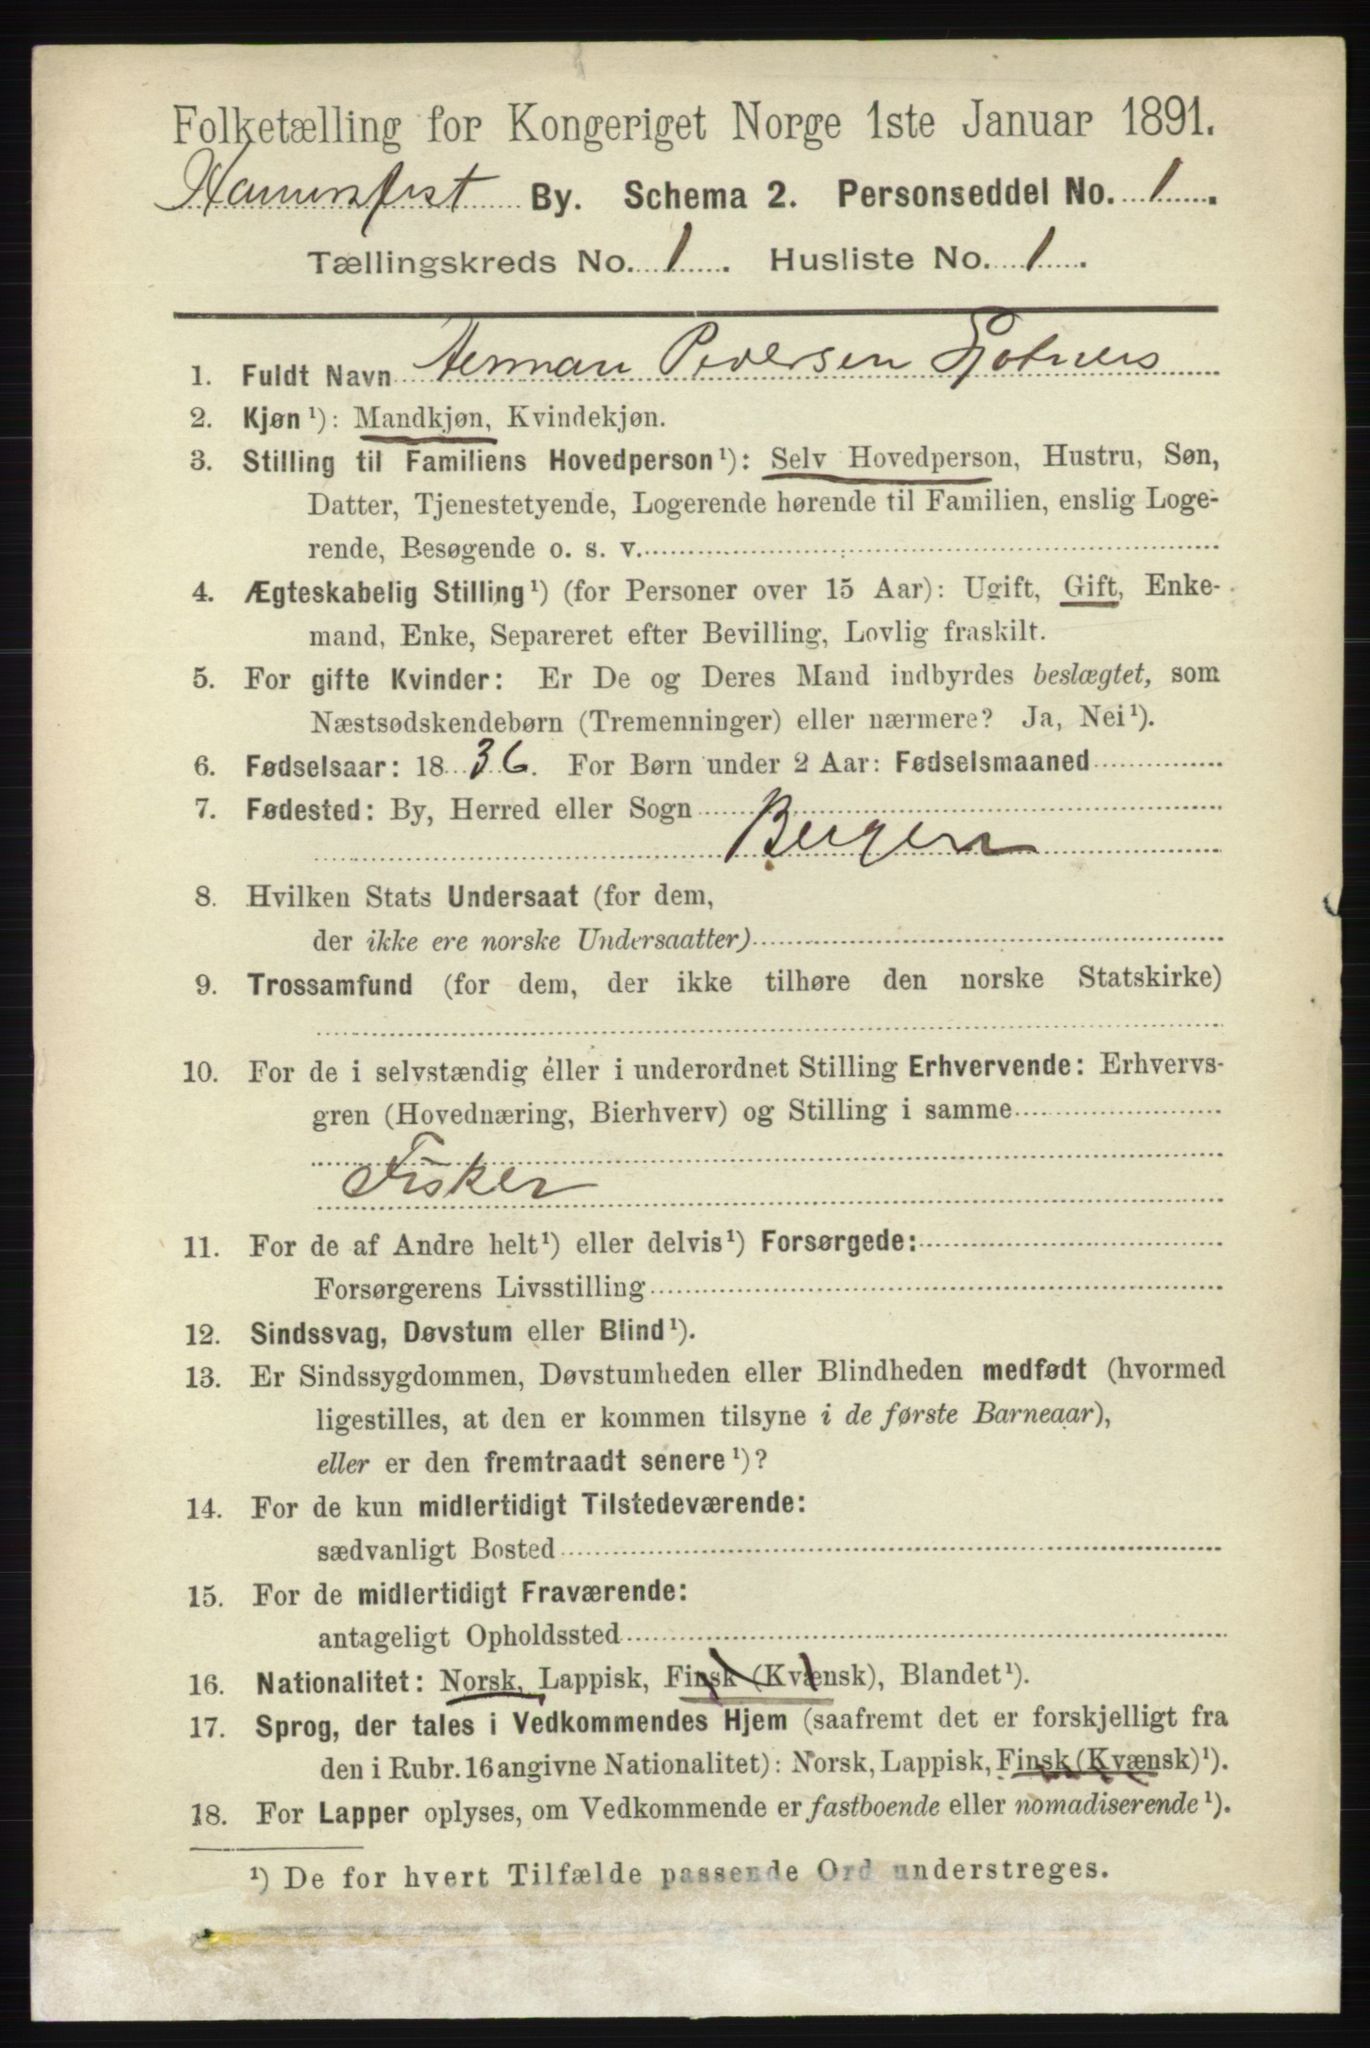 Folketælling for Kongeriget Norge 1ste Januar 1891.
Hammerfest By. Schema 2. Personseddel No. 1.
Tællingskreds No. 1. Husliste No. 1.
1. Fuldt Navn Herman Pedersen
2. Kjøn ¹): Mandkjøn, Kvindekjøn.
3. Stilling til Familiens Hovedperson ¹): Selv Hovedperson, Hustru, Søn,
Datter, Tjenestetyende, Logerende hørende til Familien, enslig Loge-
rende, Besøgende o. s. v.
4. Ægteskabelig Stilling ¹) (for Personer over 15 Aar): Ugift, Gift, Enke-
mand, Enke, Separeret efter Bevilling, Lovlig fraskilt.
5. For gifte Kvinder: Er De og Deres Mand indbyrdes beslægtet, som
Næstsødskendebørn (Tremenninger) eller nærmere? Ja, Nei ¹).
6. Fødselsaar: 1836. For Børn under 2 Aar: Fødselsmaaned
7. Fødested: By, Herred eller Sogn
Bergen
8. Hvilken Stats Undersaat (for dem,
der ikke ere norske Undersaatter)
9. Trossamfund (for dem, der ikke tilhøre den norske Statskirke)
10. For de i selvstændig éller i underordnet Stilling Erhvervende: Erhvervs-
gren (Hovednæring, Bierhverv) og Stilling i samme
Fisker
11. For de af Andre helt ¹) eller delvis ¹) Forsørgede:
Forsørgerens Livsstilling
12. Sindssvag, Døvstum eller Blind ¹).
13. Er Sindssygdommen, Døvstumheden eller Blindheden medfødt (hvormed
ligestilles, at den er kommen tilsyne i de første Barneaar),
eller er den fremtraadt senere ¹)?
14. For de kun midlertidigt Tilstedeværende:
sædvanligt Bosted
15. For de midlertidigt Fraværende:
antageligt Opholdssted
16. Nationalitet: Norsk, Lappisk, Finsk (Kvænsk), Blandet ¹).
17. Sprog, der tales i Vedkommendes Hjem (saafremt det er forskjelligt fra
den i Rubr. 16 angivne Nationalitet): Norsk, Lappisk, Finsk (Kvænsk) ¹).
18. For Lapper oplyses, om Vedkommende er fastboende eller nomadiserende ¹).
¹) De for hvert Tilfælde passende Ord understreges.